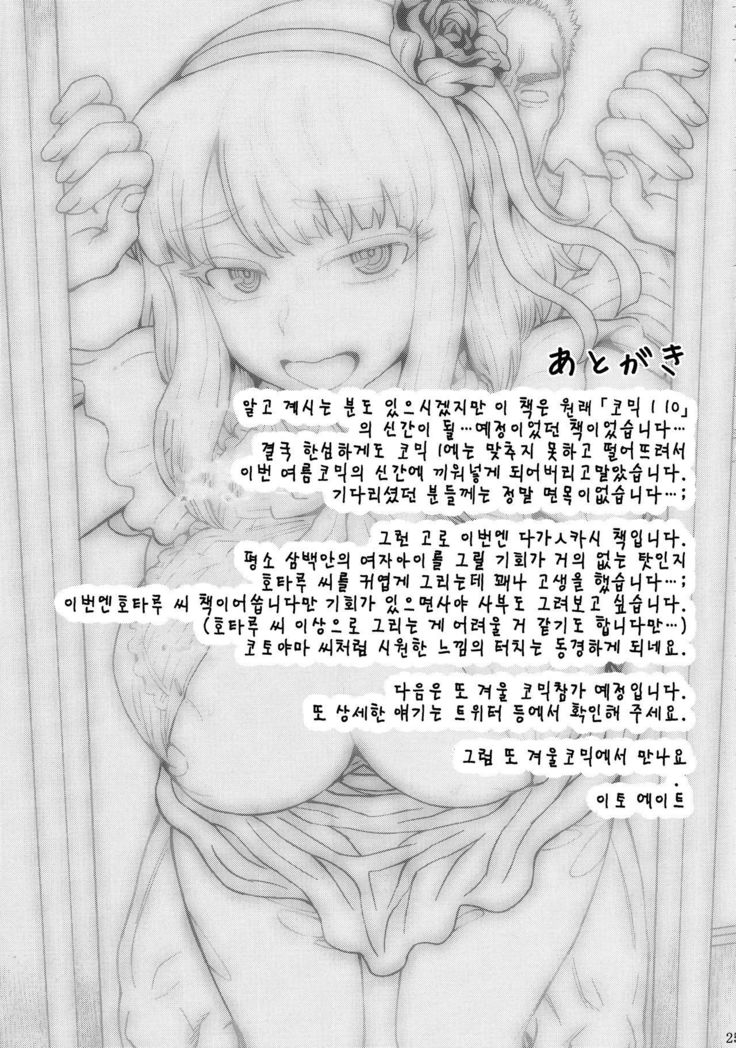 あとがき
알고 계시는 분도 있으시겠지만 이 책은 원래 「코믹 1 10」
의 신간이 될…예정이었던 책이었습니다…
결국 한심하게도 코믹 1에는 맞추지 못하고 떨어뜨려서
이번 여름코믹의 신간에 끼워넣게 되어버리고말았습니다.
기다리셨던 분들께는 정말 면목이없습니다…;
그런 고로 이번엔 다가시카시 책입니다.
평소 삼백안의 여자아이를 그릴 기회가 거의 없는 탓인지
호타루 씨를 커엽게 그리는데 꽤나 고생을 했습니다…;
이번엔호타루 씨 책이어씁니다만 기회가 있으면사야 사부도 그려보고 싶습니다.
(호타루 씨 이상으로 그리는 게 어려울 거 같기도 합니다만…)
코토야마 씨처럼 시원한 느낌의 터치는 동경하게 되네요.
다음은 또 겨울 코믹참가 예정입니다.
또 상세한 얘기는 트위터 등에서 확인해 주세요.
그럼 또 겨울코믹에서 만나요
.
이토 에이트
25